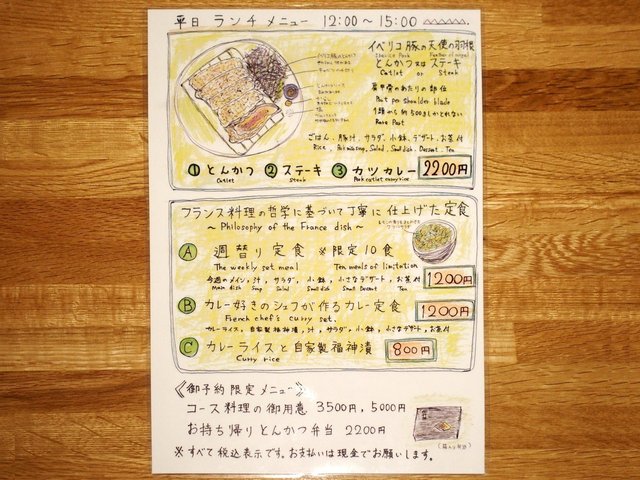 平日 ランチ メニュー 12:00〜15:00
イベリコ豚の天使の羽根
Iberico Pork Feather of angel
とんかつ又は ステーキ
Cutlet or Steak
肩甲骨のあたりの部位
Part per shoulder blade
1頭から約500gしかとれない
Rare Part
ごはん、豚汁、サラダ、小鉢、デザート、お茶付
Rice, Pork miso soup, Salad, Small dish, Dessert, Tea
① とんかつ ② ステーキ ③ カツカレー 2200円
Cutlet Steak Pork cutlet curry rice
フランス料理の哲学に基づいて丁寧に仕上げた定食
〜 Philosophy of the France dish 〜
Ⓐ 週替り定食 ※限定10食
The weekly set meal Ten meals of limitation
今週のメイン、汁、サラダ、小鉢、小さなデザート、お茶付
Main dish Soup Salad Small dish Small Dessert Tea
1200円
Ⓑ カレー好きのシェフが作るカレー定食 1200円
French chef's curry set.
カレーライス、自家製福神漬、汁、サラダ、小鉢、小さなデザート、お茶付
Ⓒ カレーライスと自家製福神漬 800円
Curry rice
《御予約限定メニュー》
コース料理の御用意 3500円, 5000円
お持ち帰りとんかつ弁当 2200円
※すべて税込表示です。お支払いは現金でお願いします。